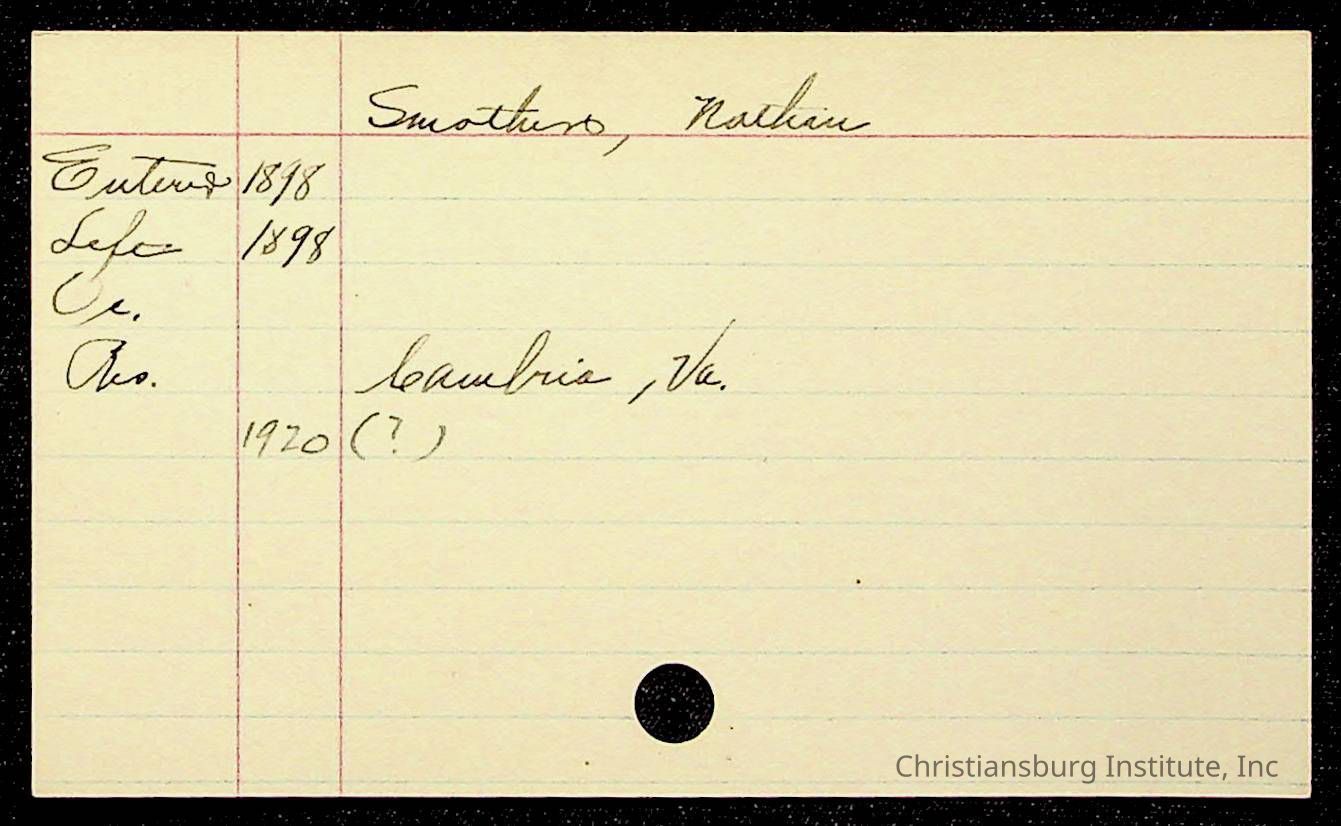 Smothers, Nathan
Entered 1898
Left 1898
Cr.
Res. Cambria, Va.
1920 (?)
Christiansburg Institute, Inc